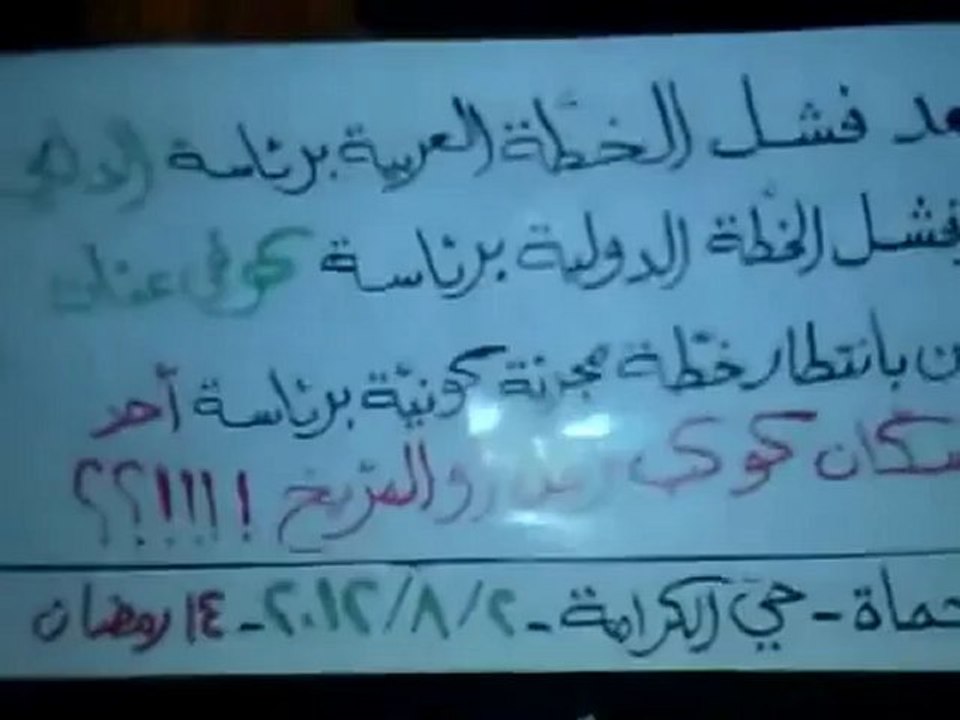 عد فشل الخطّة العربية برئاسة الدابي
فشل الخطّة الدولية برئاسة كوفي عنان
ن بانتظار خطّة مجرتة كونيّة برئاسة أحد
سكان كوكب والمرّيخ !!!!؟؟
حماة - حيّ الكرامة - ٢٠١٢/٨/٢ - ١٤ رمضان